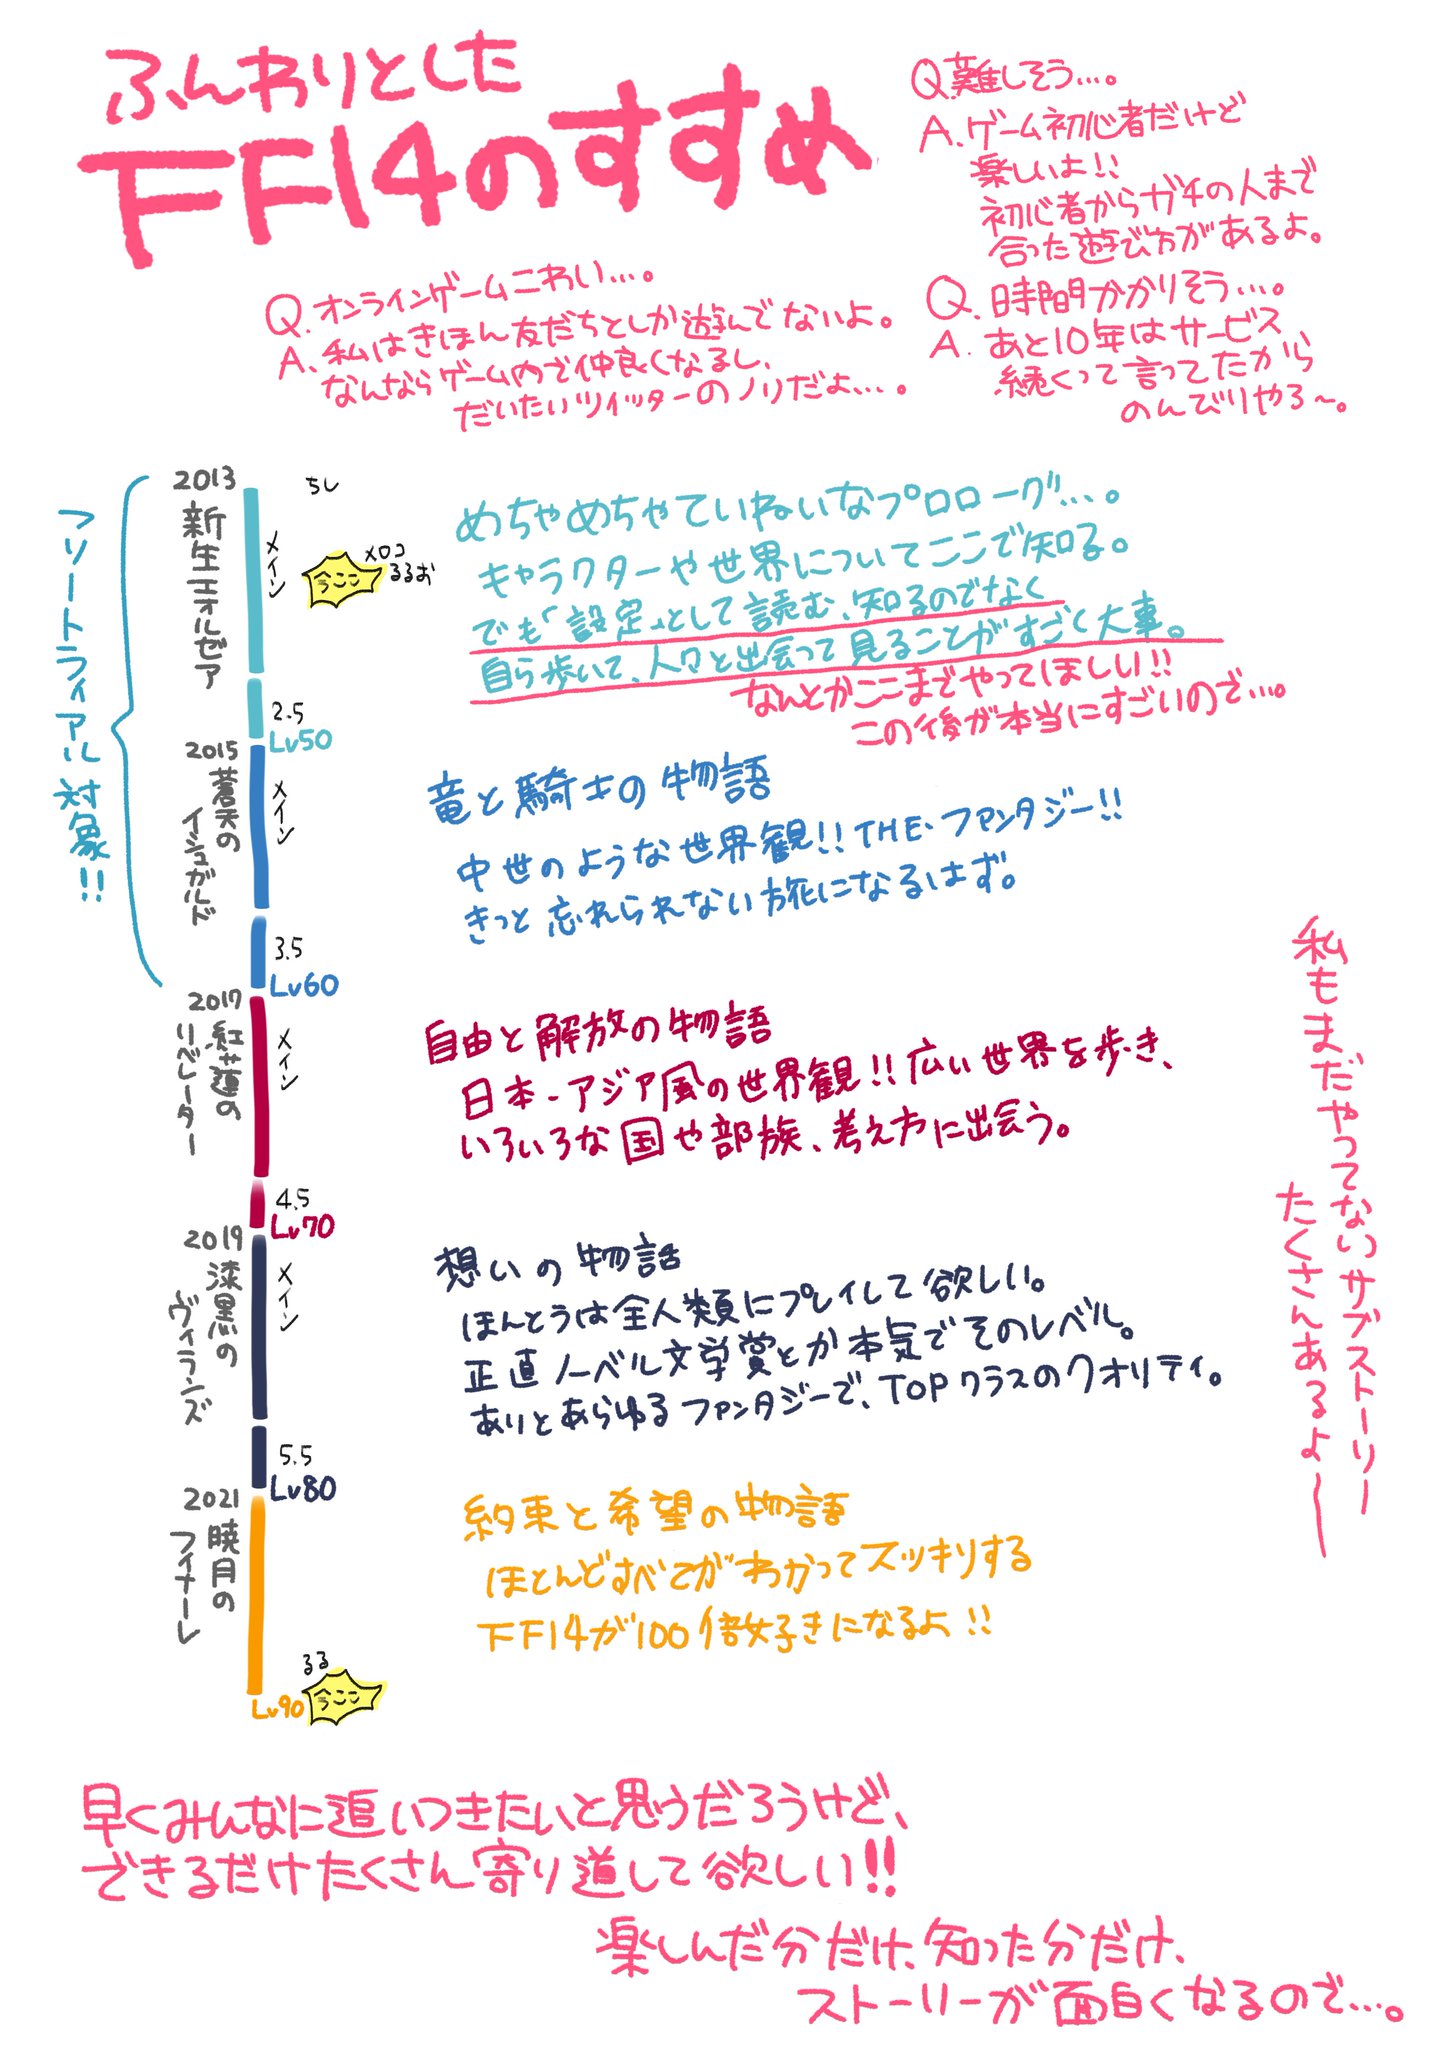 ふんわりとした
FF14のすすめ
Q.難しそう…。
A.ゲーム初心者だけど
楽しいよ!!
初心者からガチの人まで
合った遊び方があるよ。
Q.オンラインゲームこわい…。
A.私はきほん友だちとしか遊んでないよ。
なんならゲーム内で仲良くなるし、
だいたいツイッターのノリだよ…。
Q.時間かかりそう…。
A.あと10年はサービス
続くって言ってたから
のんびりやろ〜。
フリートライアル対象!!
2013
新生エオルゼア
メイン
ちし
今ここ
メロコ
るるお
めちゃめちゃていねいなプロローグ…。
キャラクターや世界についてここで知る。
でも「設定」として読む、知るのでなく
自ら歩いて、人々と出会って見ることがすごく大事。
なんとかここまでやってほしい!!
この後が本当にすごいので…。
2.5
Lv50
2015
蒼天の
イシュガルド
メイン
竜と騎士の物語
中世のような世界観!!THE・ファンタジー!!
きっと忘れられない旅になるはず。
3.5
Lv60
2017
紅蓮の
リベレーター
メイン
自由と解放の物語
日本-アジア風の世界観!!広い世界を歩き、
いろいろな国や部族、考え方に出会う。
4.5
Lv70
2019
漆黒の
ヴィランズ
メイン
想いの物語
ほんとうは全人類にプレイして欲しい。
正直ノーベル文学賞とか本気でそのレベル。
ありとあらゆるファンタジーで、TOPクラスのクオリティ。
5.5
Lv80
2021
暁月の
フィナーレ
約束と希望の物語
ほとんどすべてがわかってスッキリする
FF14が100倍好きになるよ!!
るる
Lv90
今ここ
私もまだやってないサブストーリー
たくさんあるよ〜
早くみんなに追いつきたいと思うだろうけど、
できるだけたくさん寄り道して欲しい!!
楽しんだ分だけ、知った分だけ、
ストーリーが面白くなるので…。